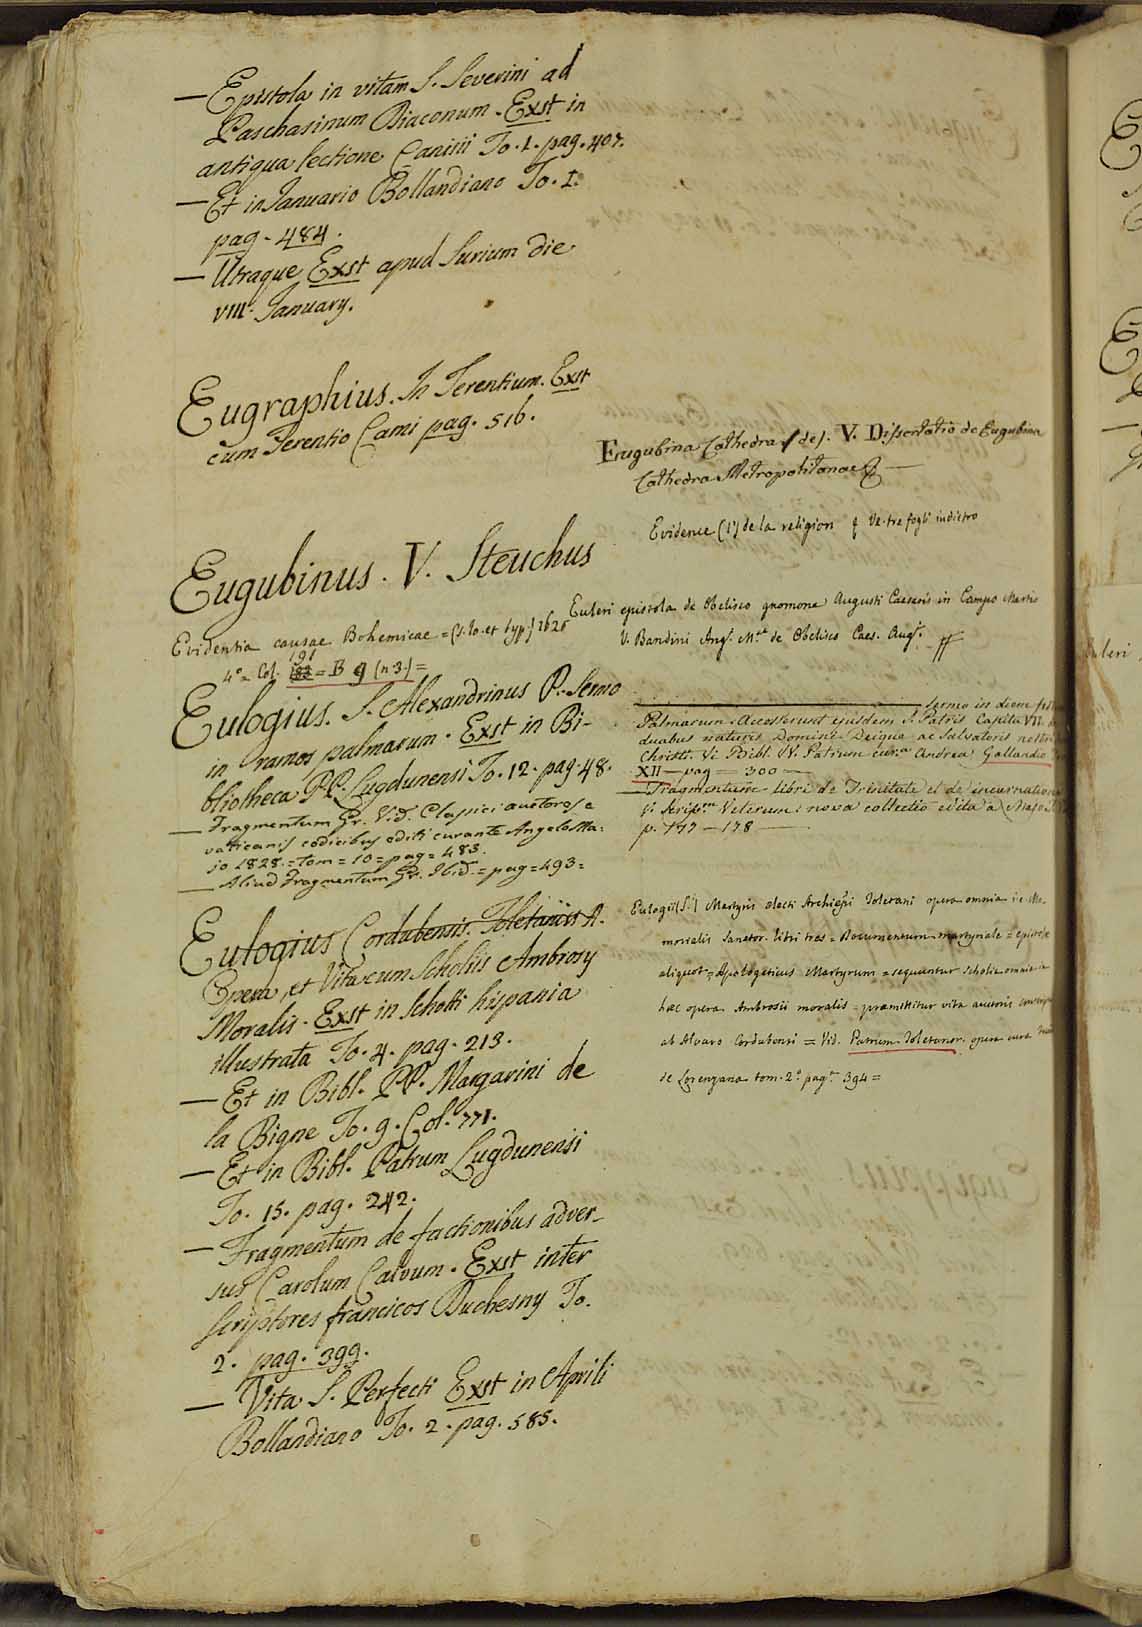 — Epistola in vitam S. Severini ad
Paschasinum Diaconum. Exst in
antiqua lectione Canisii To. 1. pag. 407.
— Et in Januario Bollandiano To. I.
pag. 484.
— Utraque Exst apud Surium die
VIII. January.
Eugraphius. In Terentium. Exst
cum Terentio Cami pag. 516.
Eugubinus. V. Steuchus
Evidentia causae Bohemicae = (s. lo. et typ.) 1625
4º = Col. 191 = B 9 (n. 3.) =
Eulogius. S. Alexandrinus P. Sermo
in ramos palmarum. Exst in Bi-
bliotheca PP. Lugdunensi To. 12. pag. 48.
— Fragmentum Gr. Vid. Classici auctores e
vaticanis codicibus editi curante Angelo Ma:
io 1828. = Tom = 10 = pag = 483.
— Aliud Fragmentum Gr. Ibid. = pag = 493 =
Eulogius Cordubensis. Toletanus A.
Opera, et Vita cum Scholiis Ambrosy
Moralis. Exst in Schotti hispania
illustrata To. 4. pag. 213.
— Et in Bibl. PP. Margarini de
la Bigne To. 9. Col. 771.
— Et in Bibl. Patrum Lugdunensi
To. 15. pag. 242.
— Fragmentum de factionibus adver-
sus Carolum Calvum. Exst inter
scriptores francicos Duchesny To.
2. pag. 399.
— Vita S. Perfecti Exst in Aprili
Bollandiano To. 2. pag. 585.
Eugubina Cathedra des. V. Dissertatio de Eugubina
Cathedra Metropolitana
Evidence (l') de la religion Ve. tre fogli indietro
Euleri epistola de Obelisco gnomone Augusti Caesaris in Campo Martio
V. Bandini Ang. Mª de Obelisco Caes. Aug.
— Sermo in diem fes
Palmarum. Accesserunt ejusdem S. Patris Capita VII. de
duabus naturis Domini Deique ac Salvatoris nostri
Christi. V. Bibl. VV. Patrum cura Andrea Gallandio
XII — pag — 300 —
— Fragmentum libri de Trinitate et de incarnatione
Scrip.m Veterum nova collectio edita a Majo
p. 177 — 178 —
Eulogii (S.) Martyris electi Archiepi Toletani opera omnia
morialis Sanctor. libri tres = Documentum martyriale = epistolae
aliquot = Apologeticus Martyrum = sequuntur scholia omnia in
haec opera Ambrosii moralis = praemittitur vita auctoris
ab Alvaro Cordubensi = Vid. Patrum Toletanor. opera cura
de Lorenzana tom. 2º pag. 394 =